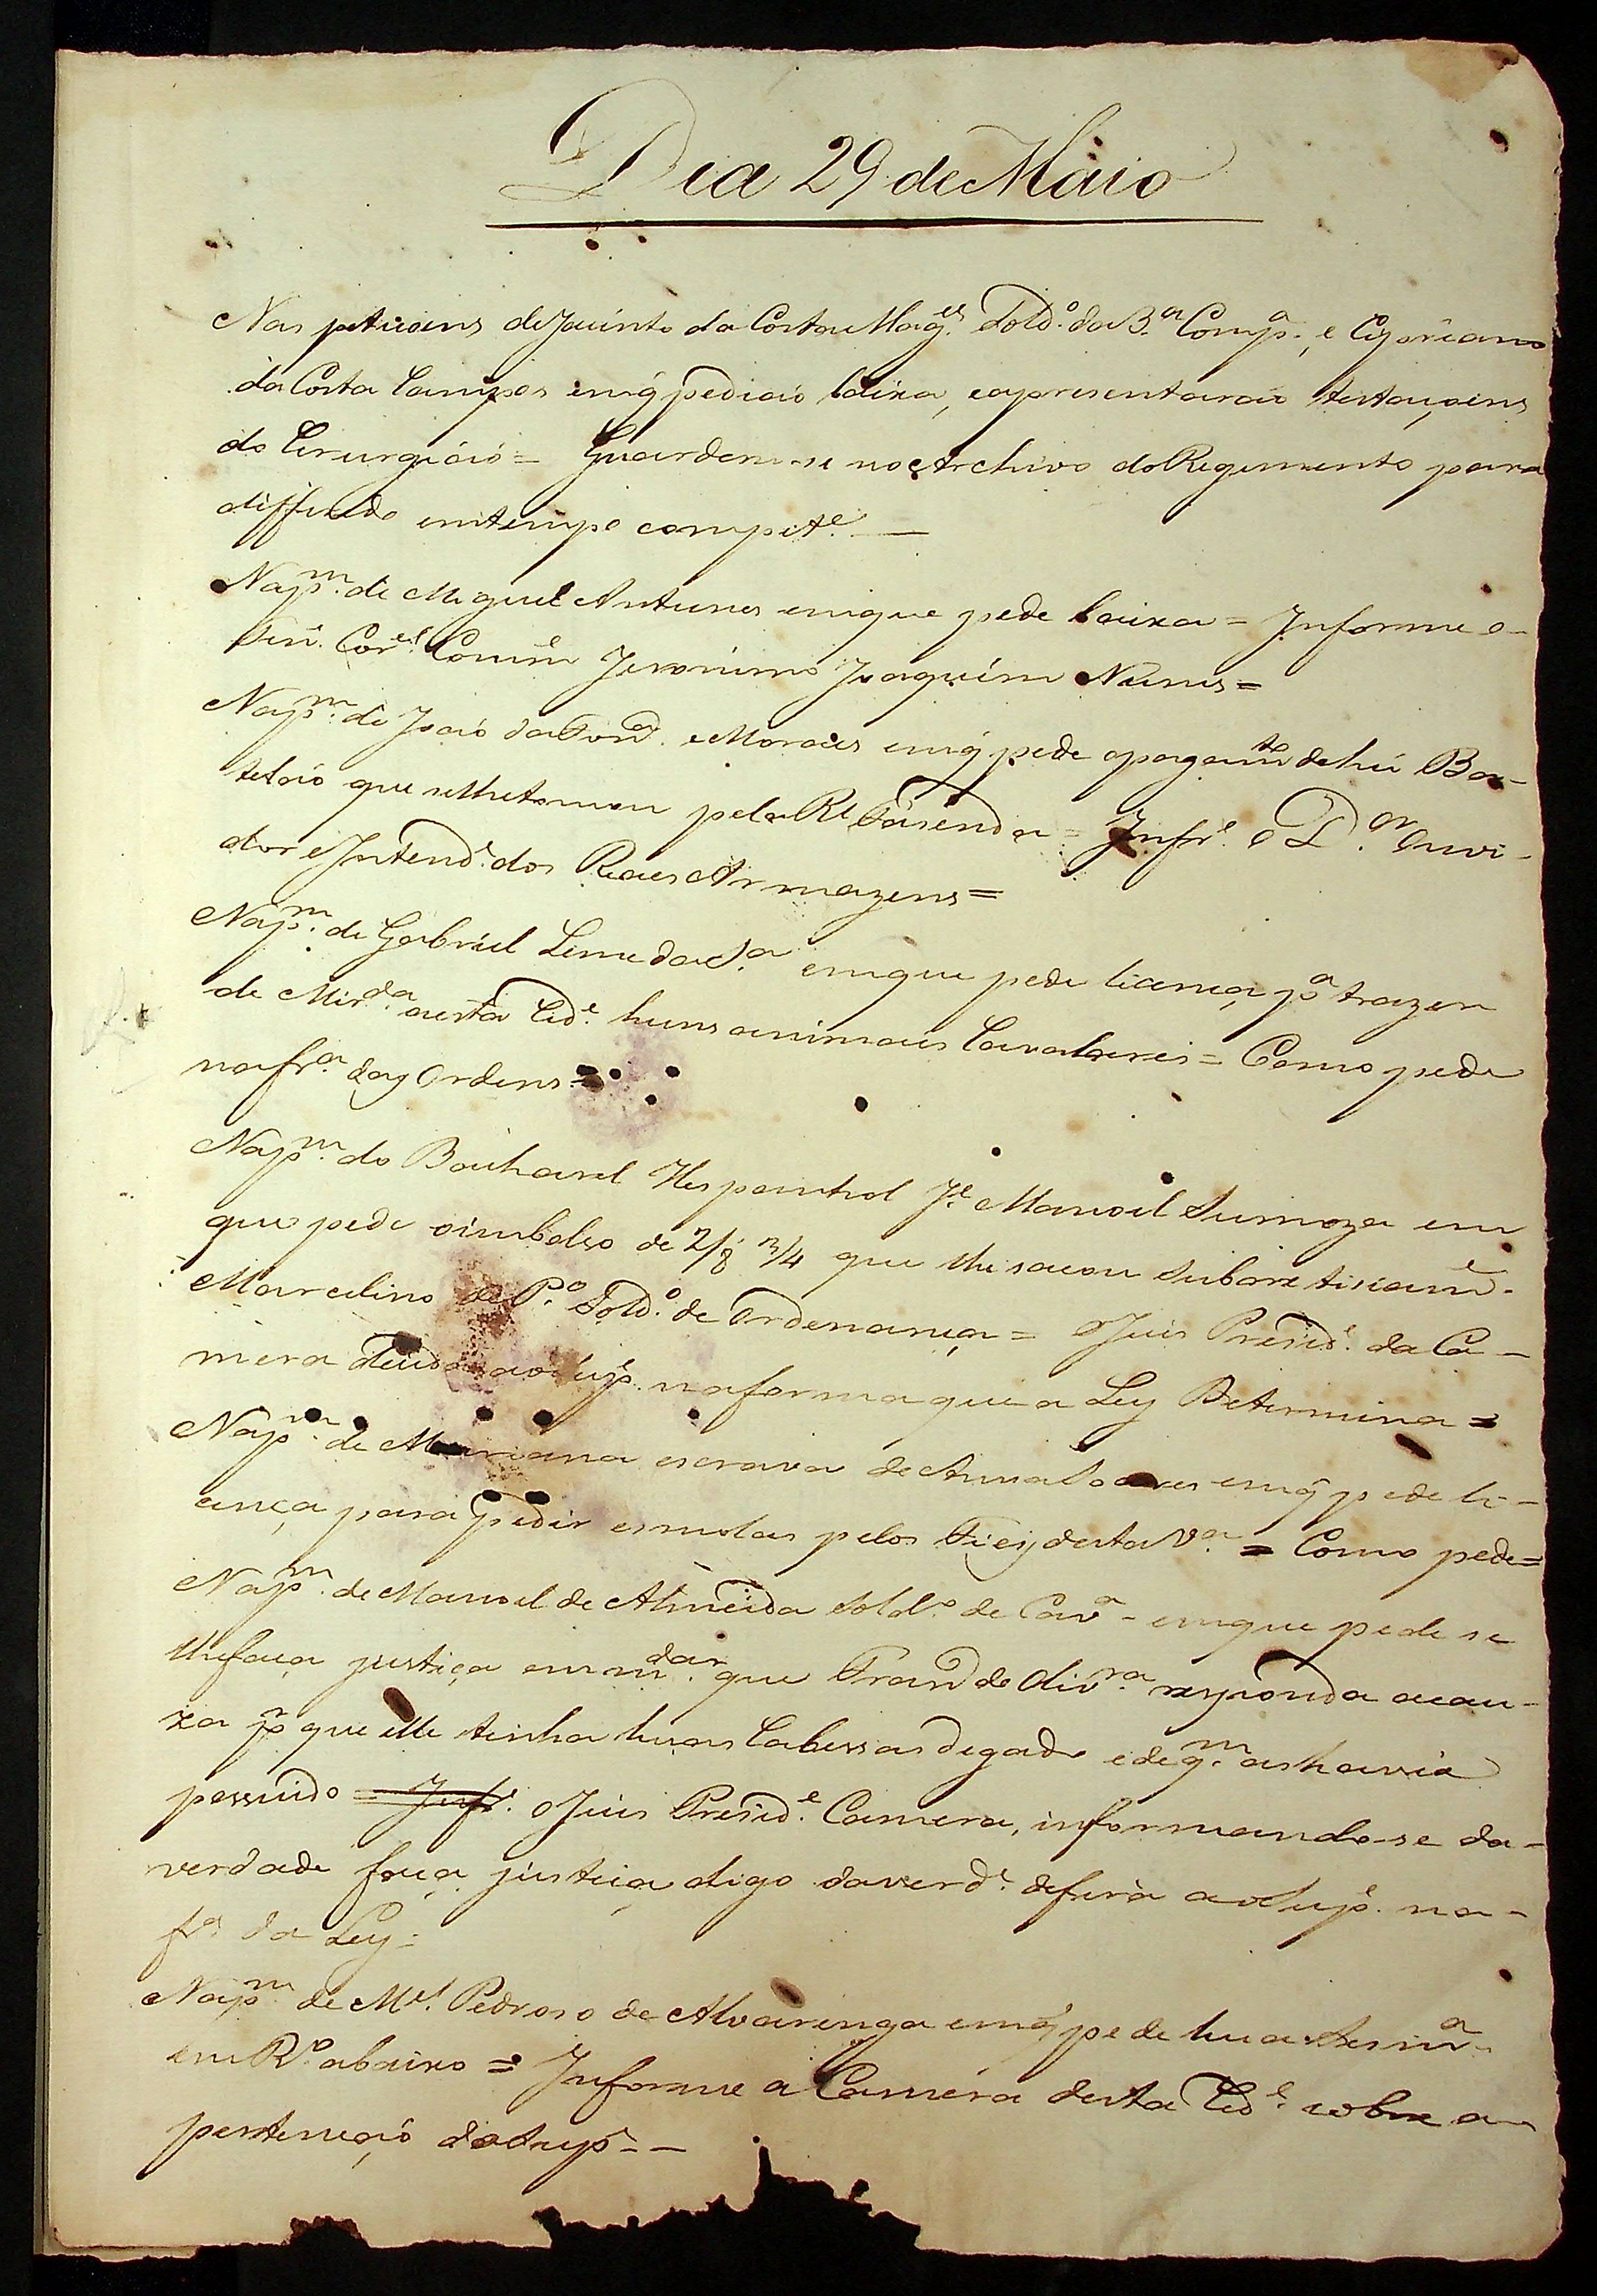 Dia 29 de Maio
Nas petiçoens de Jacinto da Costa e Mag.es Sold.º da 3.ª Comp.ª, e Cypriano
da Costa Campos em q̃ pediaõ baixa, e apresentaraõ atestaçoens
do Cirurgiaõ = Guardem-se no Archivo do Regimento para
differido em tempo compet.e —
Na p.m de Miguel Antunes em que pede baixa = Informe o
Ten. Cor.el Comm.e Jeronimo Joaquim Nunes =
Na p.m de Joaõ da Fon.ca e Moraes em q̃ pede o pagam.to de hũ Ba-
telaõ que se lhe tomou pela R.l Fasenda = Infr.e o D.or Ouvi-
dor e Intend.e dos Reaes Armazens =
Na p.m de Gabriel Leme da S.ª em que pede licença p.ª trazer
de Mir.da a esta Cid.e huns animaes Cavalares = Como pede
na fr.ª das Ordens =
Na p.m do Bacharel Hespanhol J.e Manoel Sumoza em
que pede o imbolso de 2/8 3/4 que lhe sacou subrepticiam.e
Marcelino de P.º Sold.º de Ordenança = O Juis Presid.e da Ca-
mera defira ao Sup.e na forma que a Ley Determina =
Na p.m de Mariana escrava de Anna Soares em q̃ pede li-
cença para pedir esmolas pelos Fieis desta V.ª = Como pede =
Na p.m de Manoel de Almeida Sold.º de Cav.ª em que pede se
lhe faça justiça em m.dar que Fran.co de Oliv.ra responda a cau-
za p.r que elle tinha huas Cabessas de gado e de q.m as havia
possuido = Infr.e O Juis Presid.e Camera, informando-se da
verdade faça justiça digo da verd.e defirà ao Sup.e na
fr.ª da Ley =
Na p.m de M.el Pedroso de Alvarenga em q̃ pede hua Sesm.ª
em R.º abaixo = Informe a Camera desta Cid.e sobre a
pertençaõ do Sup.e —